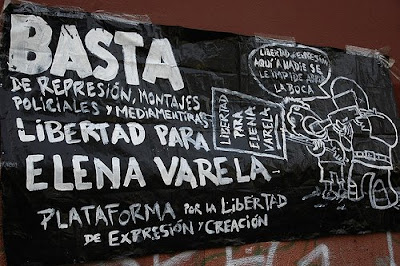 BASTA
DE REPRESIÓN, MONTAJES
POLICIALES Y MEDIAMENTIRAS
LIBERTAD PARA
ELENA VARELA
PLATAFORMA POR LA LIBERTAD
DE EXPRESIÓN Y CREACIÓN
LIBERTAD
PARA
ELENA
VARELA
LIBERTAD DE EXPRESIÓN
AQUÍ A NADIE SE
LE IMPIDE ABRIR
LA BOCA